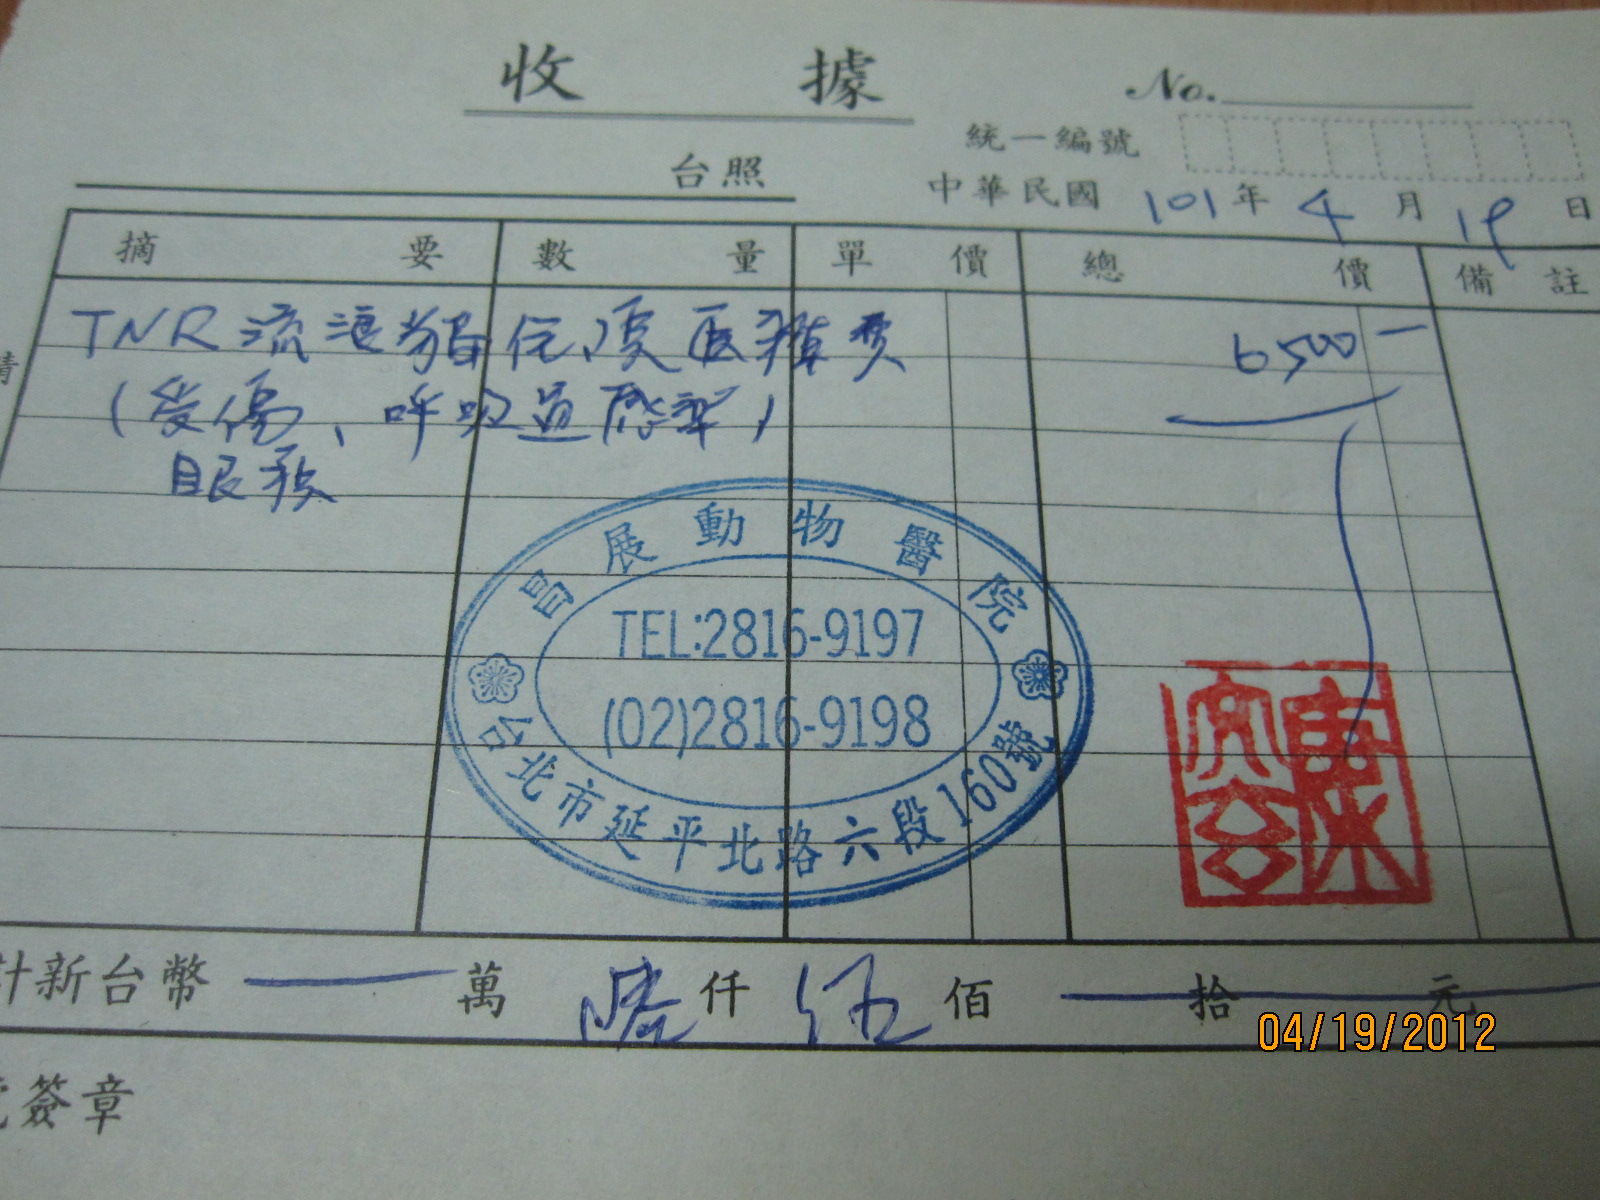 收據
No.
統一編號
台照
中華民國 101 年 4 月 19 日
摘要 數量 單價 總價 備註
TNR 流浪貓住院医療費 6500-
(受傷、呼吸道感染)
眼
昌展動物醫院
TEL:2816-9197
(02)2816-9198
台北市延平北路六段160號
計新台幣 萬 陸 仟 伍 佰 拾 元
簽章
04/19/2012